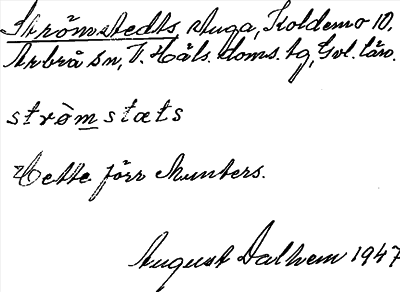 Strömstedts, stuga, Koldemo 10,
Arbrå sn, V. Häls. doms. tg, Gvl. län.
strömstæts
Hette förr Munters.
August Dalhem 1947